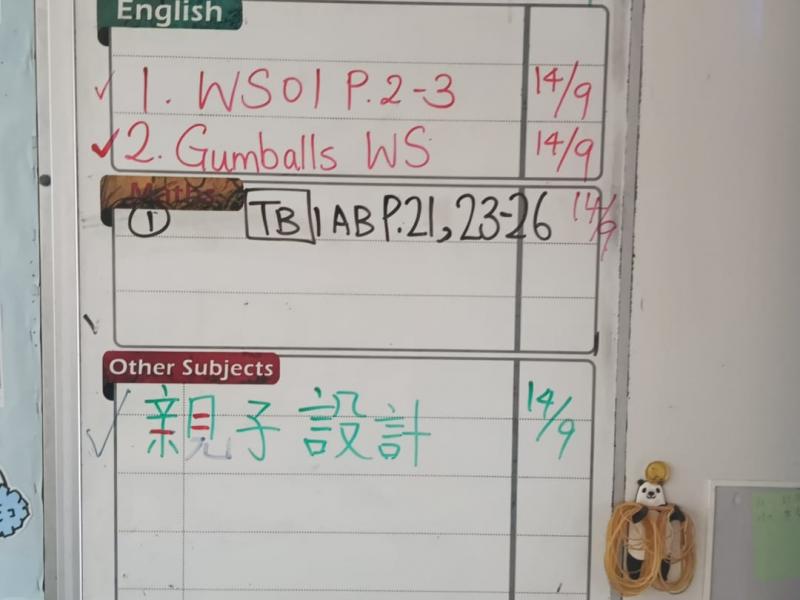 English
✓ 1. WS01 P.2-3 14/9
✓ 2. Gumballs WS 14/9
Maths
① TB 1AB P.21, 23-26 14/9
Other Subjects
✓ 親子設計 14/9